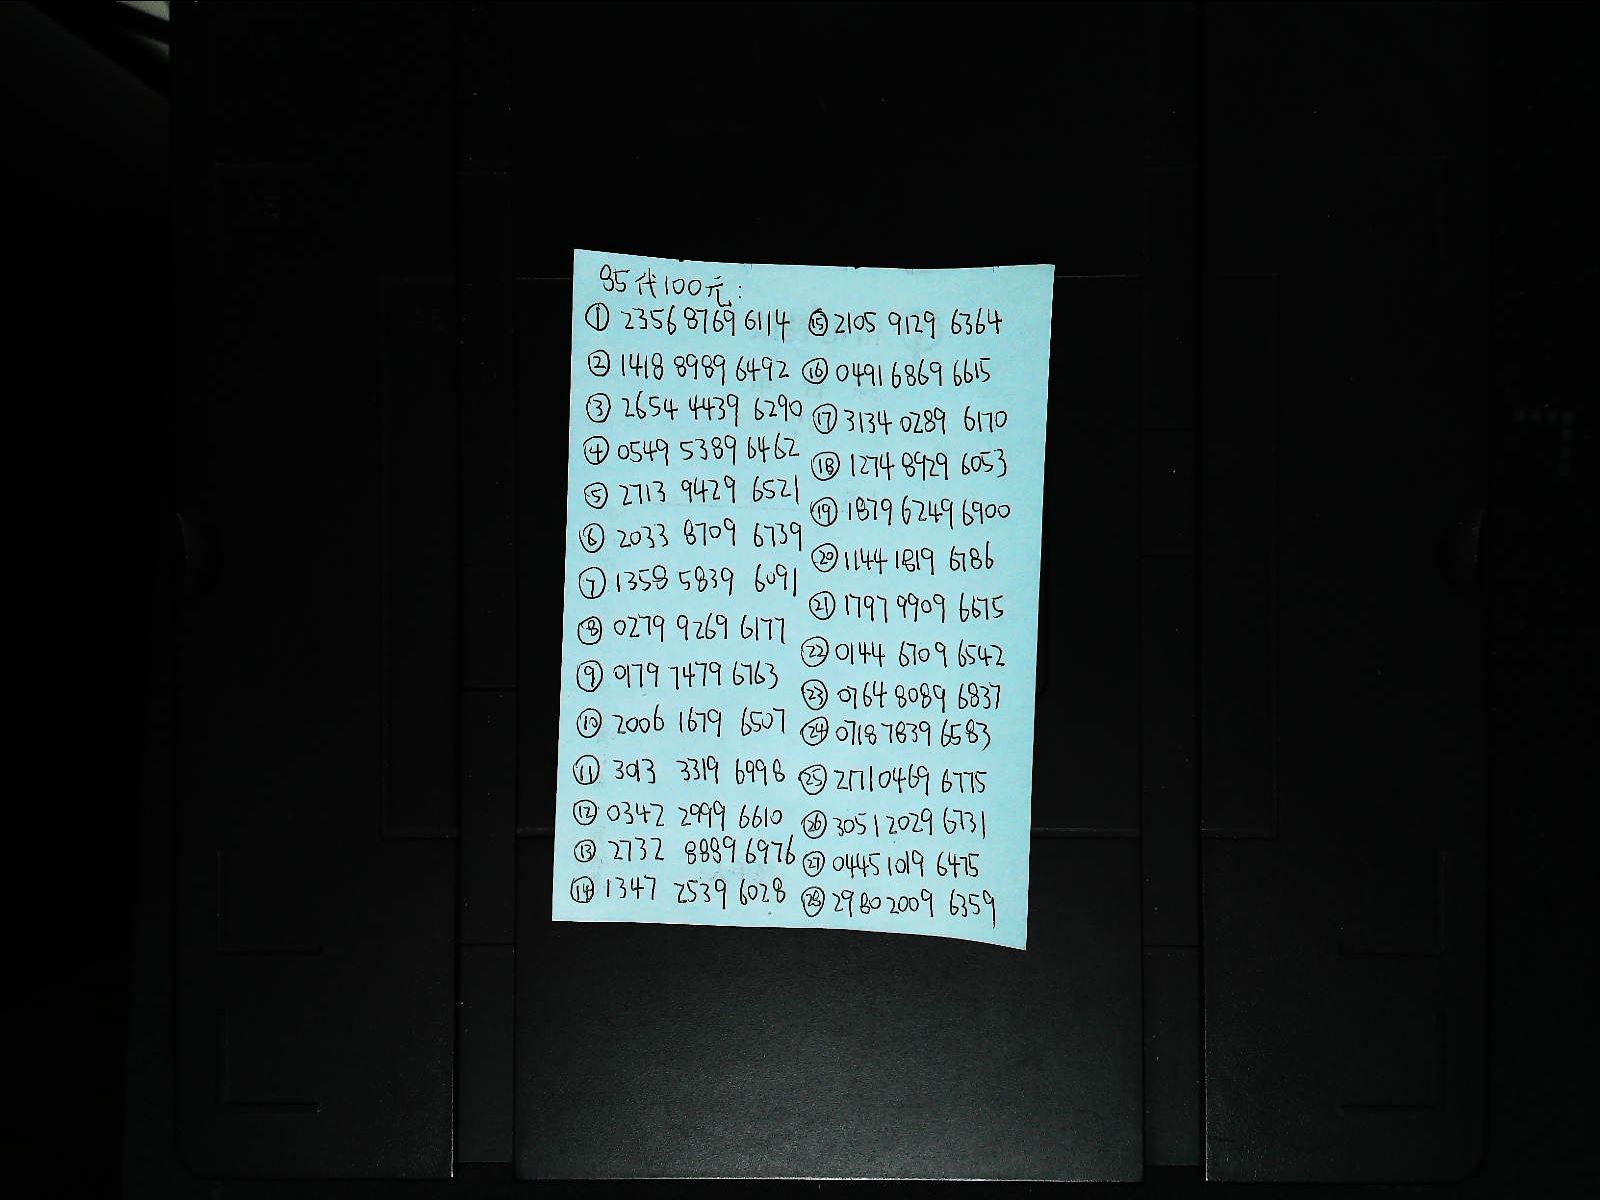 95代100元:
① 2356 8769 6114
② 1418 8989 6492
③ 2654 4439 6290
④ 0549 5389 6462
⑤ 2713 9429 6521
⑥ 2033 8709 6739
⑦ 1358 5839 6091
⑧ 0279 9269 6177
⑨ 0179 7479 6763
⑩ 2006 1679 6507
⑪ 3013 3319 6998
⑫ 0342 2999 6610
⑬ 2732 8889 6976
⑭ 1347 2539 6028
⑮ 2105 9129 6364
⑯ 0491 6869 6615
⑰ 3134 0289 6170
⑱ 1274 8929 6053
⑲ 1879 6249 6900
⑳ 1144 1819 6786
㉑ 1797 9909 6675
㉒ 0144 6709 6542
㉓ 0764 8089 6837
㉔ 0718 7839 6583
㉕ 2171 0469 6775
㉖ 3051 2029 6731
㉗ 0445 1019 6475
㉘ 2980 2009 6359